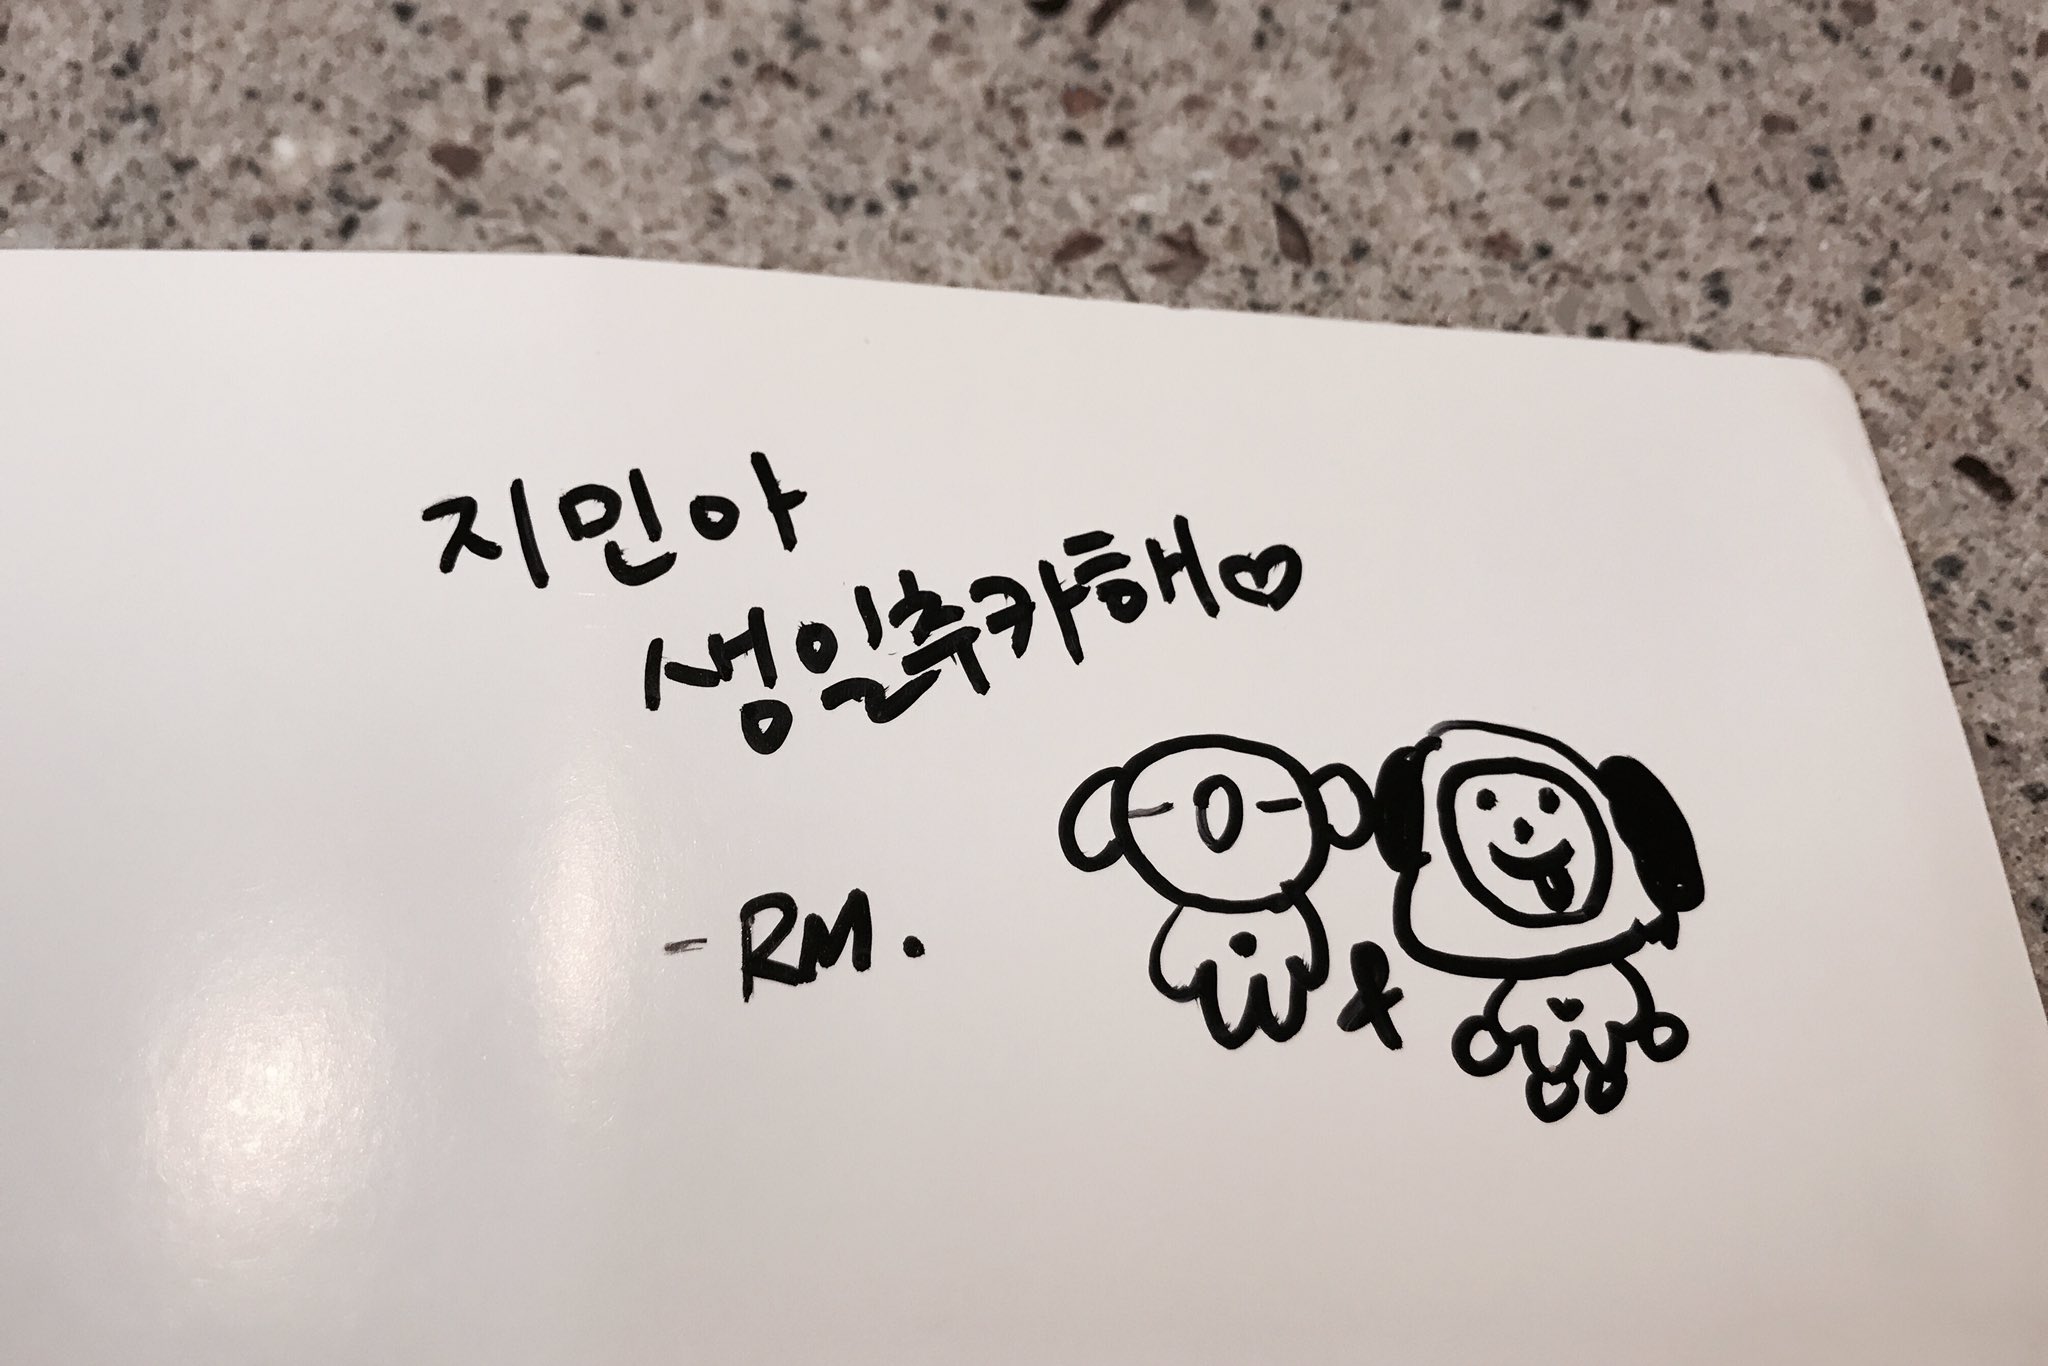 지민아
생일추카해♡
- RM.
&